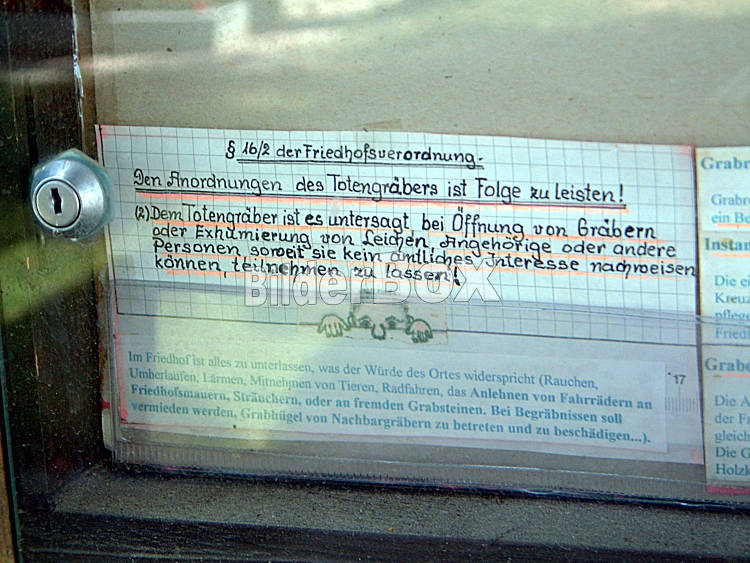 § 16/2 der Friedhofsverordnung.
Den Anordnungen des Totengräbers ist Folge zu leisten!
(2) Dem Totengräber ist es untersagt bei Öffnung von Gräbern
oder Exhumierung von Leichen, Angehörige oder andere
Personen soweit sie kein amtliches Interesse nachweisen
können, teilnehmen zu lassen!
BilderBOX
Im Friedhof ist alles zu unterlassen, was der Würde des Ortes widerspricht (Rauchen,
Umherlaufen, Lärmen, Mitnehmen von Tieren, Radfahren, das Anlehnen von Fahrrädern an
Friedhofsmauern, Sträuchern, oder an fremden Grabsteinen. Bei Begräbnissen soll
vermieden werden, Grabhügel von Nachbargräbern zu betreten und zu beschädigen...).
17
Grabr
Grabre
ein Be
Instan
Die ei
Kreuz
pflege
Friedh
Grabe
Die A
der Fr
gleich
Die G
Holzk